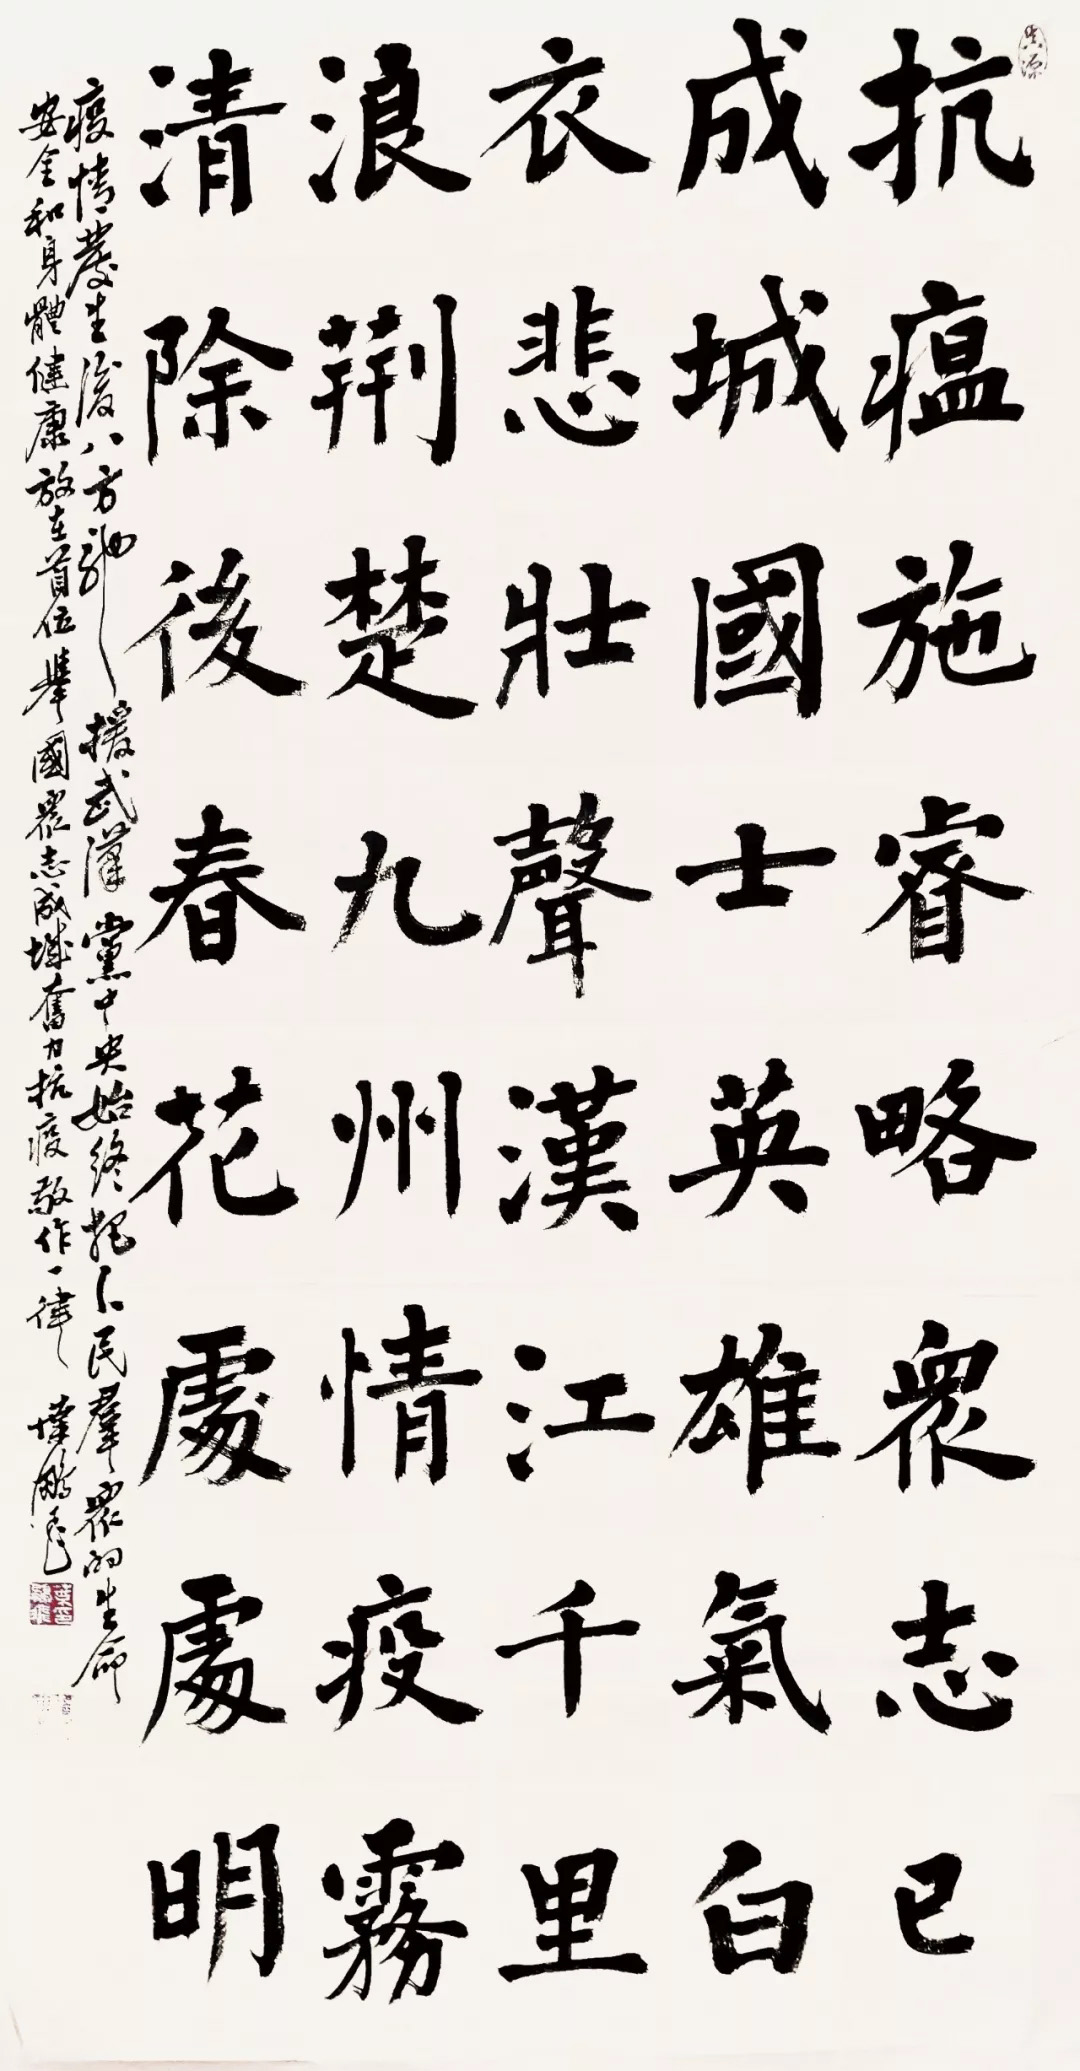 抗瘟施睿略衆志已
成城國士英雄氣白
衣悲壯聲漢江千里
浪荆楚九州情疫霧
清除後春花處處明
疫情發生後八方馳援武漢黨中央始終把人民羣衆的生命
安全和身體健康放在首位舉國衆志成城奮力抗疫敬作一律